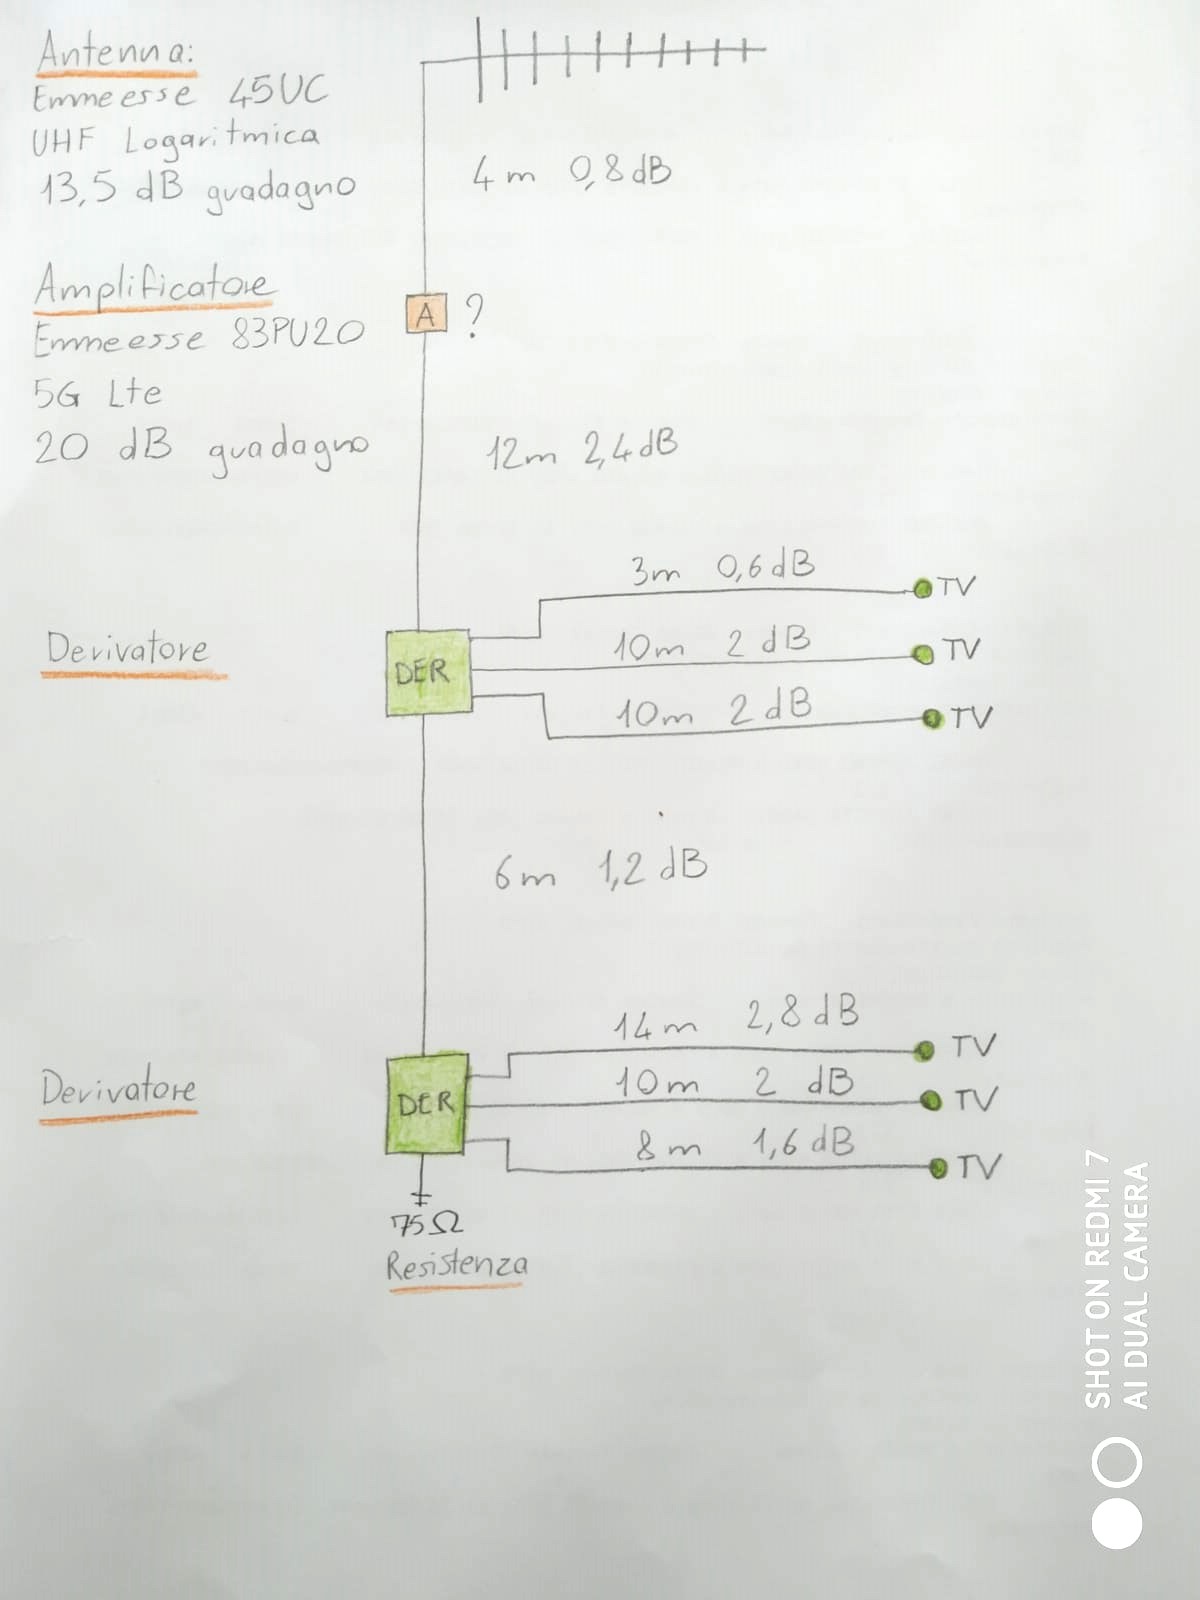 Antenna:
Emmeesse 45UC
UHF Logaritmica
13,5 dB guadagno
4m 0,8dB
Amplificatore
A ?
Emmeesse 83PU20
5G Lte
20 dB guadagno
12m 2,4dB
3m 0,6dB
TV
Derivatore
DER
10m 2 dB
TV
10m 2dB
TV
6m 1,2 dB
14m 2,8 dB
TV
Derivatore
DER
10m 2 dB
TV
8m 1,6 dB
TV
75Ω
Resistenza
SHOT ON REDMI 7
AI DUAL CAMERA